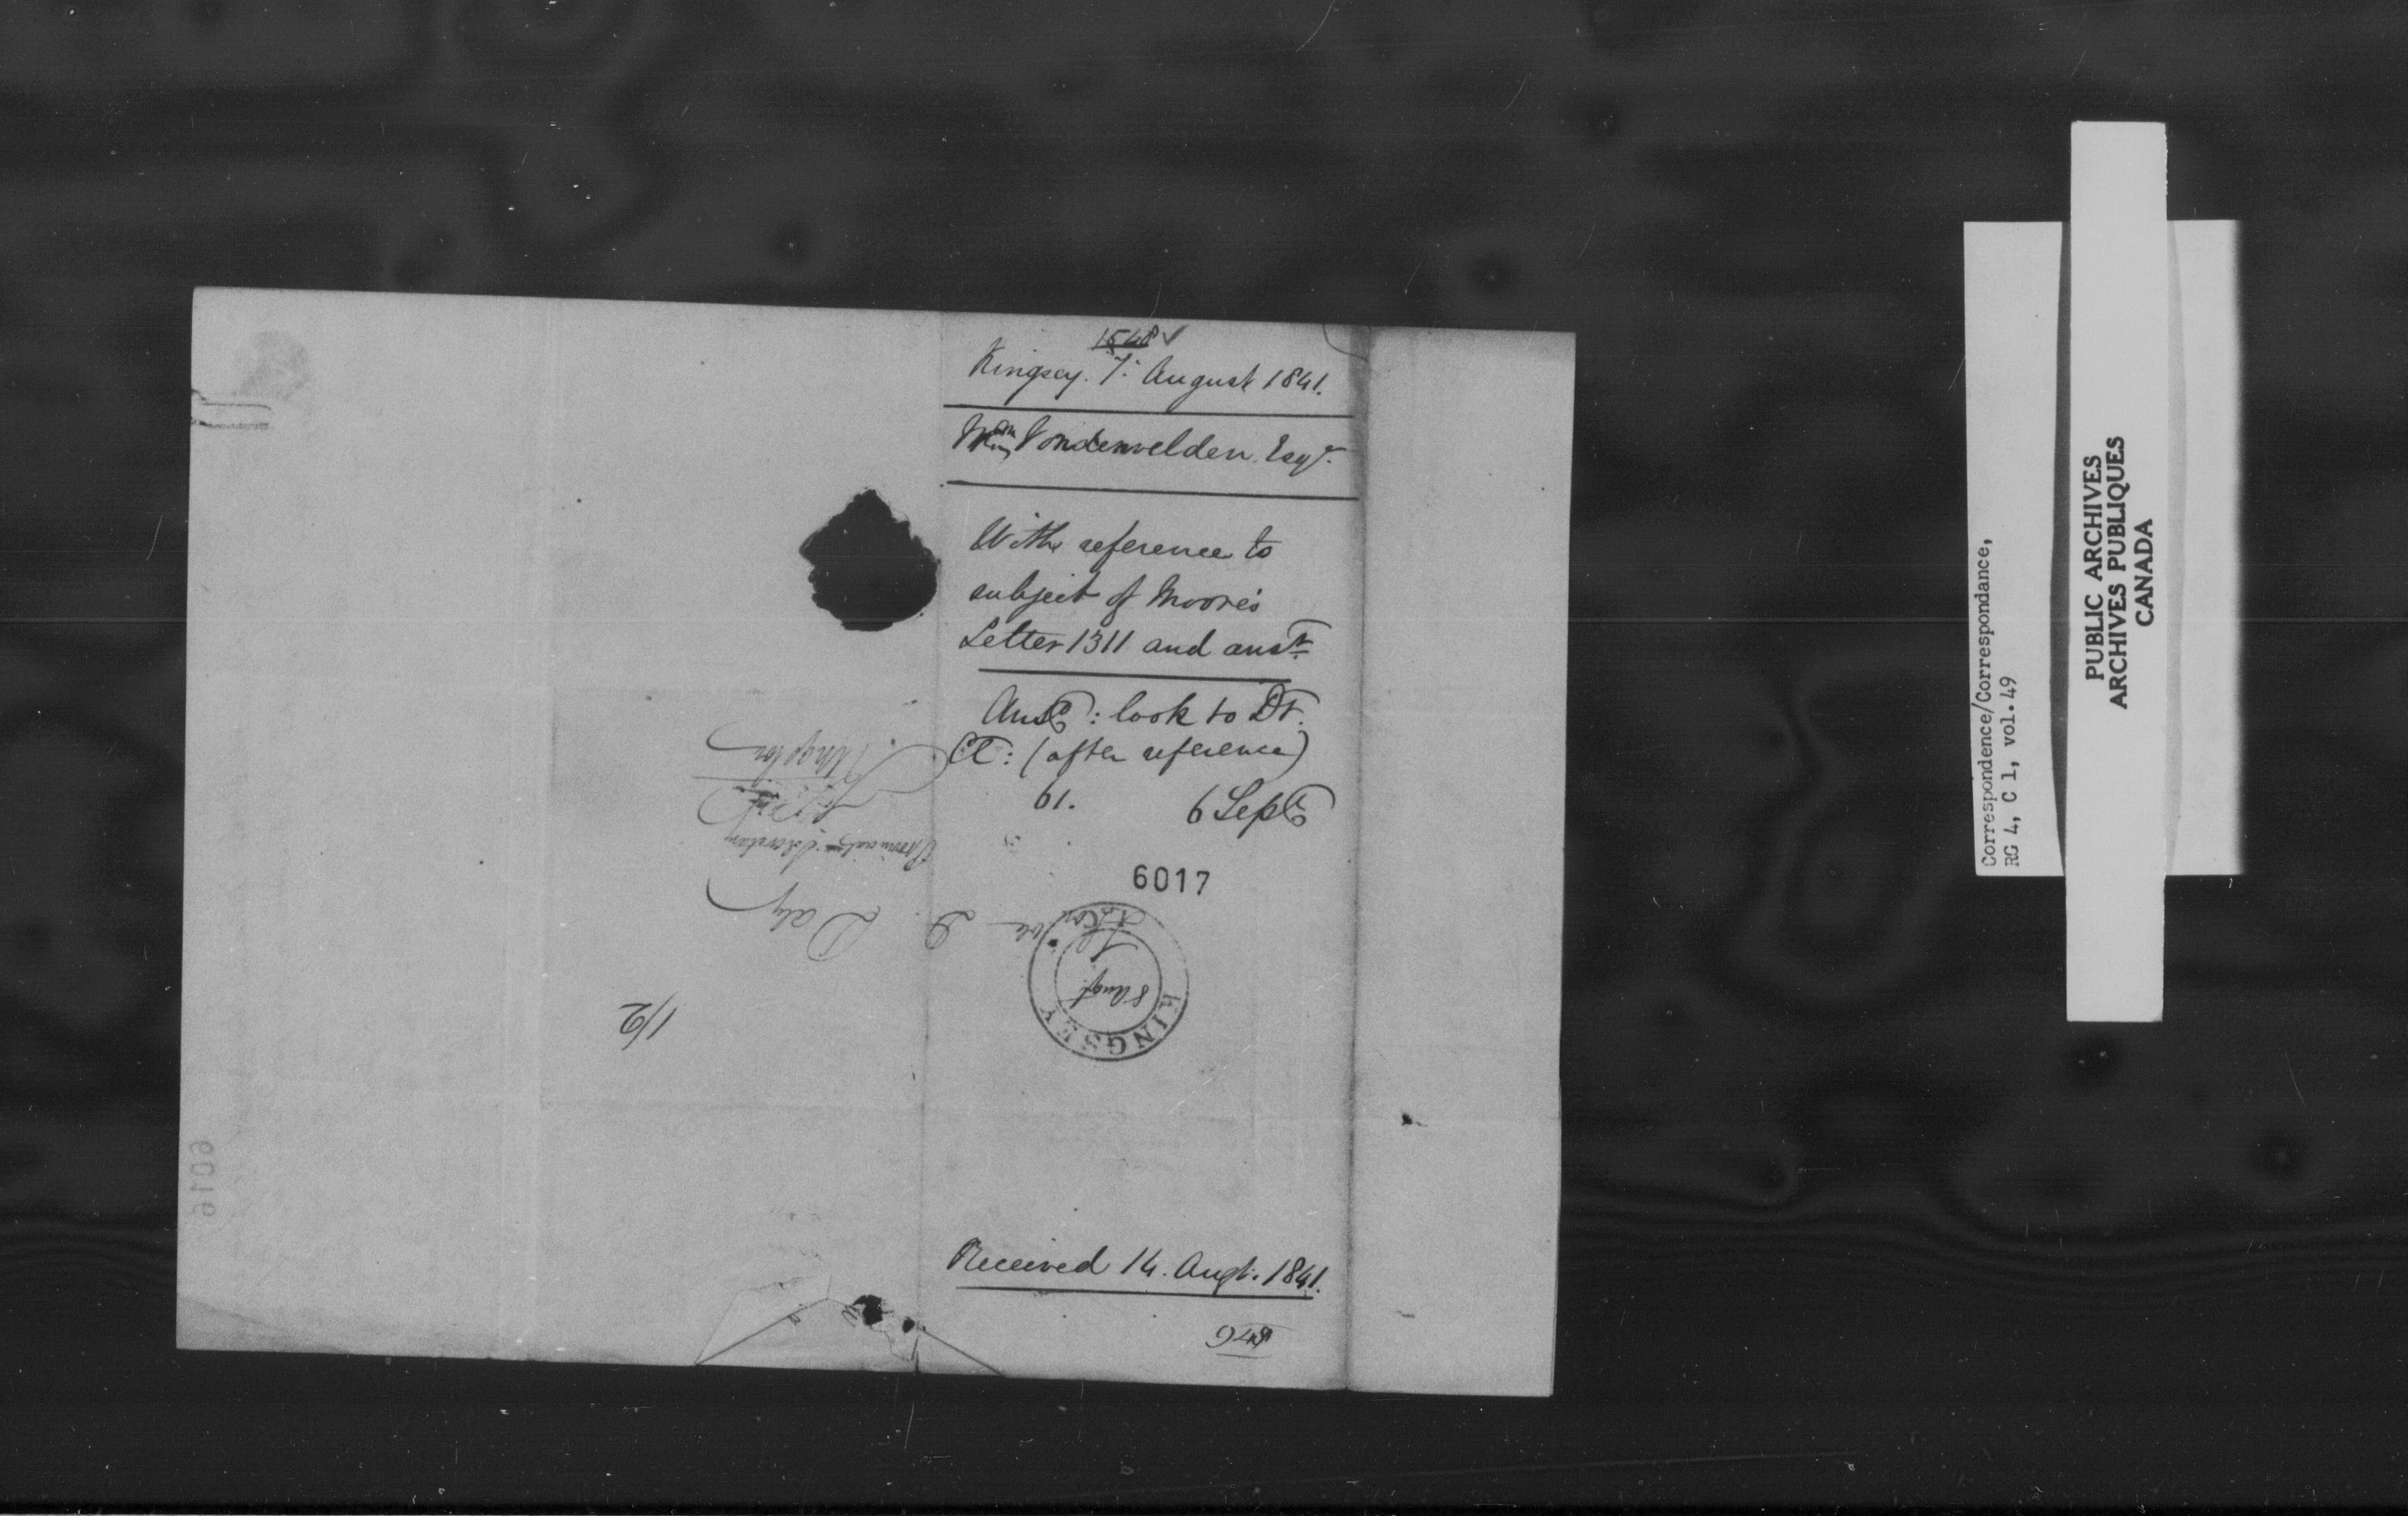 1548 ✓
Kingsey. 7: August 1841.
Wm Vondenvelden. Esqr.
With reference to
subject of Moore's
Letter 1311 and ansr.
: look to Dr.
(after reference)
61. 6 Sept
6017
The Honble D. Daly
Provincial Secretary
Kingston
KINGSEY
8 Augt.
1/2
Received 14. Augt. 1841.
6016
Correspondence/Correspondance,
RG 4, C 1, vol. 49
PUBLIC ARCHIVES
ARCHIVES PUBLIQUES
CANADA